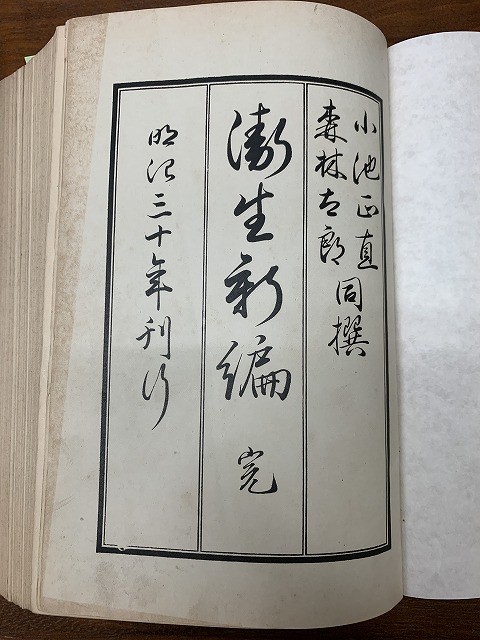 小池正直
森林太郎
同撰
衛生新編 完
明治三十年刊行